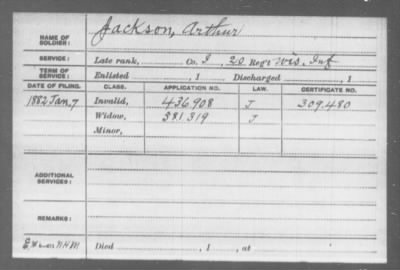 NAME OF SOLDIER: Jackson, Arthur
SERVICE: Late rank, Co. I, 20 Reg't Wis. Inf
TERM OF SERVICE: Enlisted , 1 Discharged , 1
DATE OF FILING. CLASS. APPLICATION NO. LAW. CERTIFICATE NO.
1882 Jan. 7 Invalid, 436908 J 309.480
Widow, 381319 J
Minor,
ADDITIONAL SERVICES:
REMARKS:
Died , 1 , at